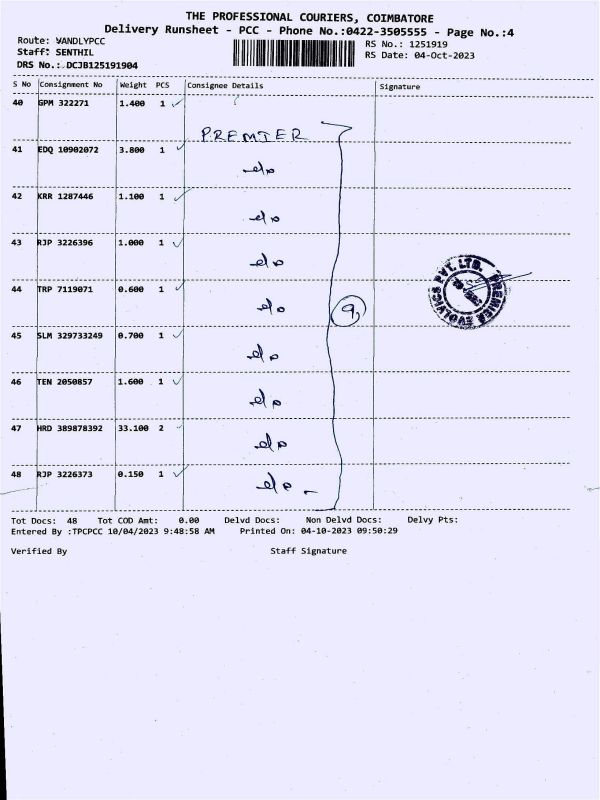 THE PROFESSIONAL COURIERS, COIMBATORE
Delivery Runsheet - PCC - Phone No.:0422-3505555 - Page No.:4
Route: VANDLYPCC
Staff: SENTHIL
DRS No.: DCJB125191904
RS No.: 1251919
RS Date: 04-Oct-2023
S No Consignment No Weight PCS Consignee Details Signature
40 GPM 322271 1.400 1 ✓
PREMIER
41 EDQ 10902072 3.800 1 ✓
do
42 KRR 1287446 1.100 1 ✓
do
43 RJP 3226396 1.000 1 ✓
do
44 TRP 7119071 0.600 1 ✓
do
9,
PREMIER EVOLVICS PVT. LTD.
45 SLM 329733249 0.700 1 ✓
do
46 TEN 2050857 1.600 1 ✓
do
47 HRD 389878392 33.100 2 ✓
do
48 RJP 3226373 0.150 1 ✓
do
Tot Docs: 48 Tot COD Amt: 0.00 Delvd Docs: Non Delvd Docs: Delvy Pts:
Entered By :TPCPCC 10/04/2023 9:48:58 AM Printed On: 04-10-2023 09:50:29
Verified By Staff Signature